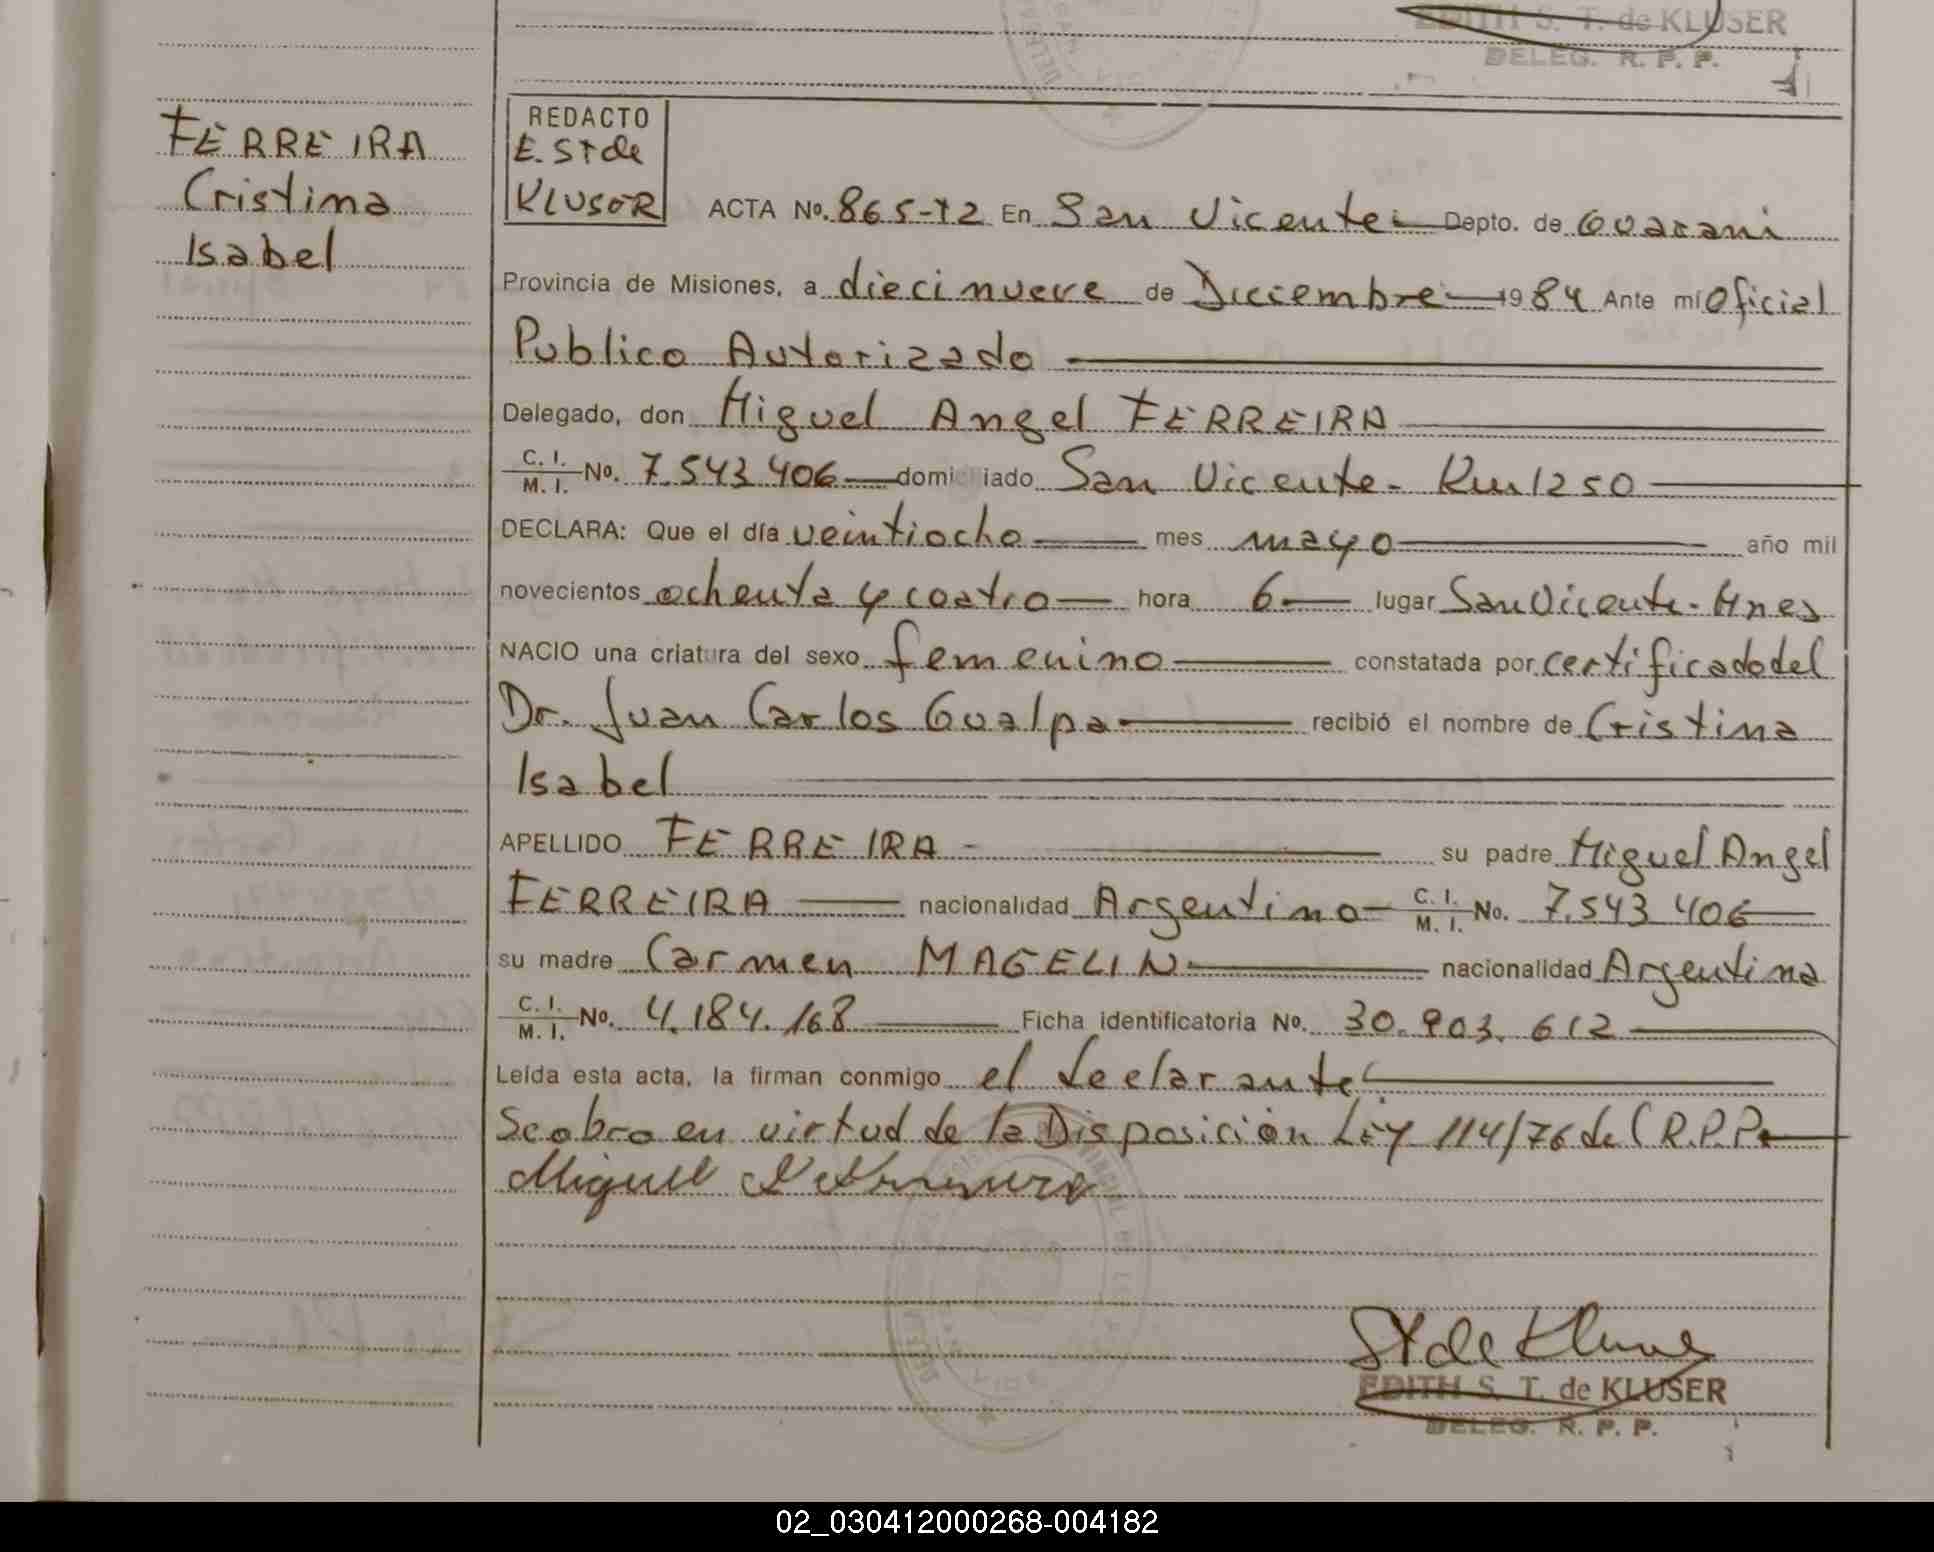 EDITH S. T. de KLUSER
DELEG. R. P. P.
FERREIRA
Cristina
Isabel
REDACTO
E. ST de
KLUSER
ACTA No. 865-T2 En San Vicente Depto. de Guarani
Provincia de Misiones, a diecinueve de Diciembre 1984 Ante mí Oficial
Publico Autorizado
Delegado, don Miguel Angel FERREIRA
C. I.
M. I. No. 7.543.406 domiciliado San Vicente - Km 1250
DECLARA: Que el día veintiocho mes mayo año mil
novecientos ochenta y cuatro hora 6 lugar San Vicente - Mnes
NACIO una criatura del sexo femenino constatada por certificado del
Dr. Juan Carlos Gualpa recibió el nombre de Cristina
Isabel
APELLIDO FERREIRA su padre Miguel Angel
FERREIRA nacionalidad Argentino C. I.
M. I. No. 7.543.406
su madre Carmen MAGELIN nacionalidad Argentina
C. I.
M. I. No. 4.184.168 Ficha identificatoria No. 30.903.612
Leída esta acta, la firman conmigo el declarante
Se obro en virtud de la Disposición Ley 114/76 del R.P.P.
Miguel
St de Kluser
EDITH S. T. de KLUSER
DELEG. R. P. P.
02_030412000268-004182